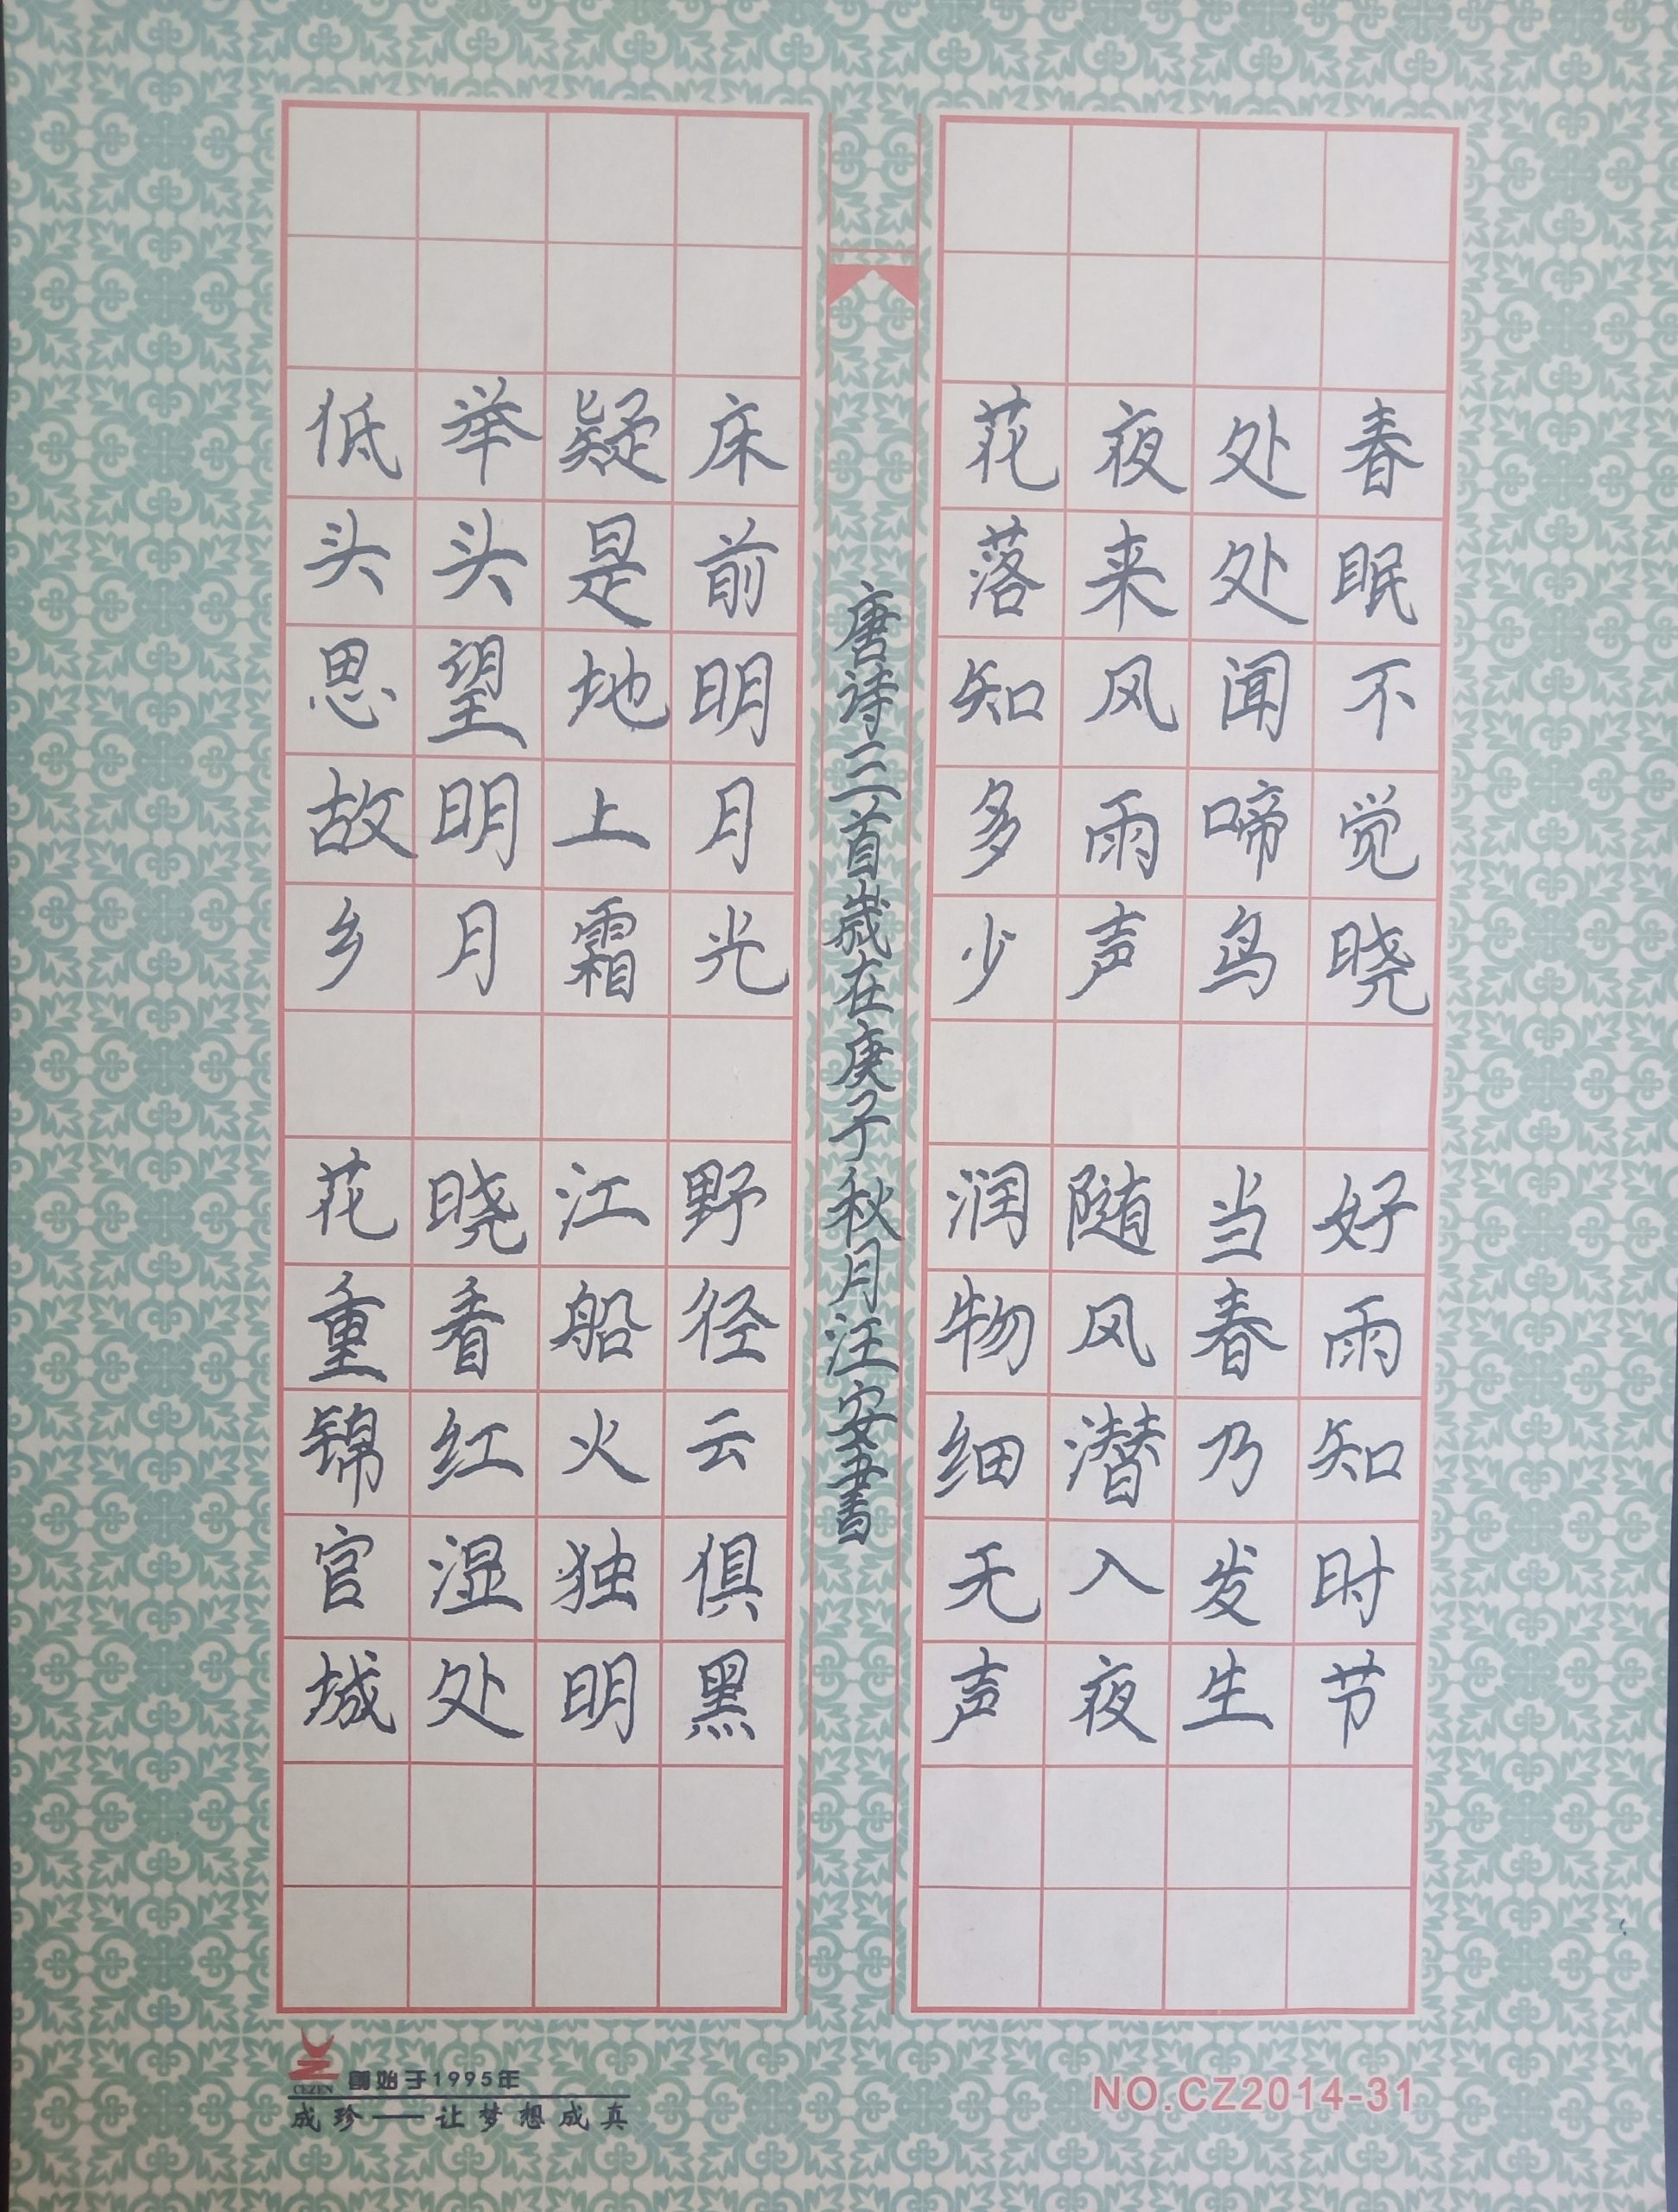 春眠不觉晓
处处闻啼鸟
夜来风雨声
花落知多少
好雨知时节
当春乃发生
随风潜入夜
润物细无声
唐诗三首歲在庚子秋月汪安書
床前明月光
疑是地上霜
举头望明月
低头思故乡
野径云俱黑
江船火独明
晓看红湿处
花重锦官城
CEZEN 創始于1995年
成珍——让梦想成真
NO.CZ2014-31